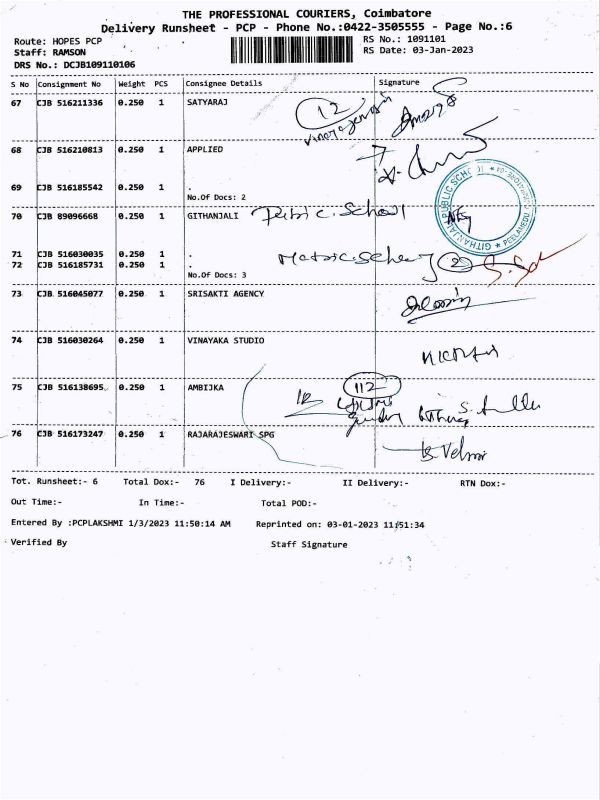 THE PROFESSIONAL COURIERS, Coimbatore
Delivery Runsheet - PCP - Phone No.:0422-3505555 - Page No.:6
Route: HOPES PCP
RS No.: 1091101
Staff: RAMSON
RS Date: 03-Jan-2023
DRS No.: DCJB109110106
S No Consignment No Weight PCS Consignee Details Signature
67 CJB 516211336 0.250 1 SATYARAJ
12
68 CJB 516210813 0.250 1 APPLIED
69 CJB 516185542 0.250 1 .
No.Of Docs: 2
GITHANJALI PUBLIC SCHOOL
PEELAMEDU
70 CJB 89096668 0.250 1 GITHANJALI Public. School
71 CJB 516030035 0.250 1 .
72 CJB 516185731 0.250 1 . Matric. 2
No.Of Docs: 3
73 CJB 516045077 0.250 1 SRISAKTI AGENCY
74 CJB 516030264 0.250 1 VINAYAKA STUDIO
75 CJB 516138695 0.250 1 AMBIJKA
112
76 CJB 516173247 0.250 1 RAJARAJESWARI SPG
Tot. Runsheet:- 6 Total Dox:- 76 I Delivery:- II Delivery:- RTN Dox:-
Out Time:- In Time:- Total POD:-
Entered By :PCPLAKSHMI 1/3/2023 11:50:14 AM Reprinted on: 03-01-2023 11:51:34
Verified By Staff Signature